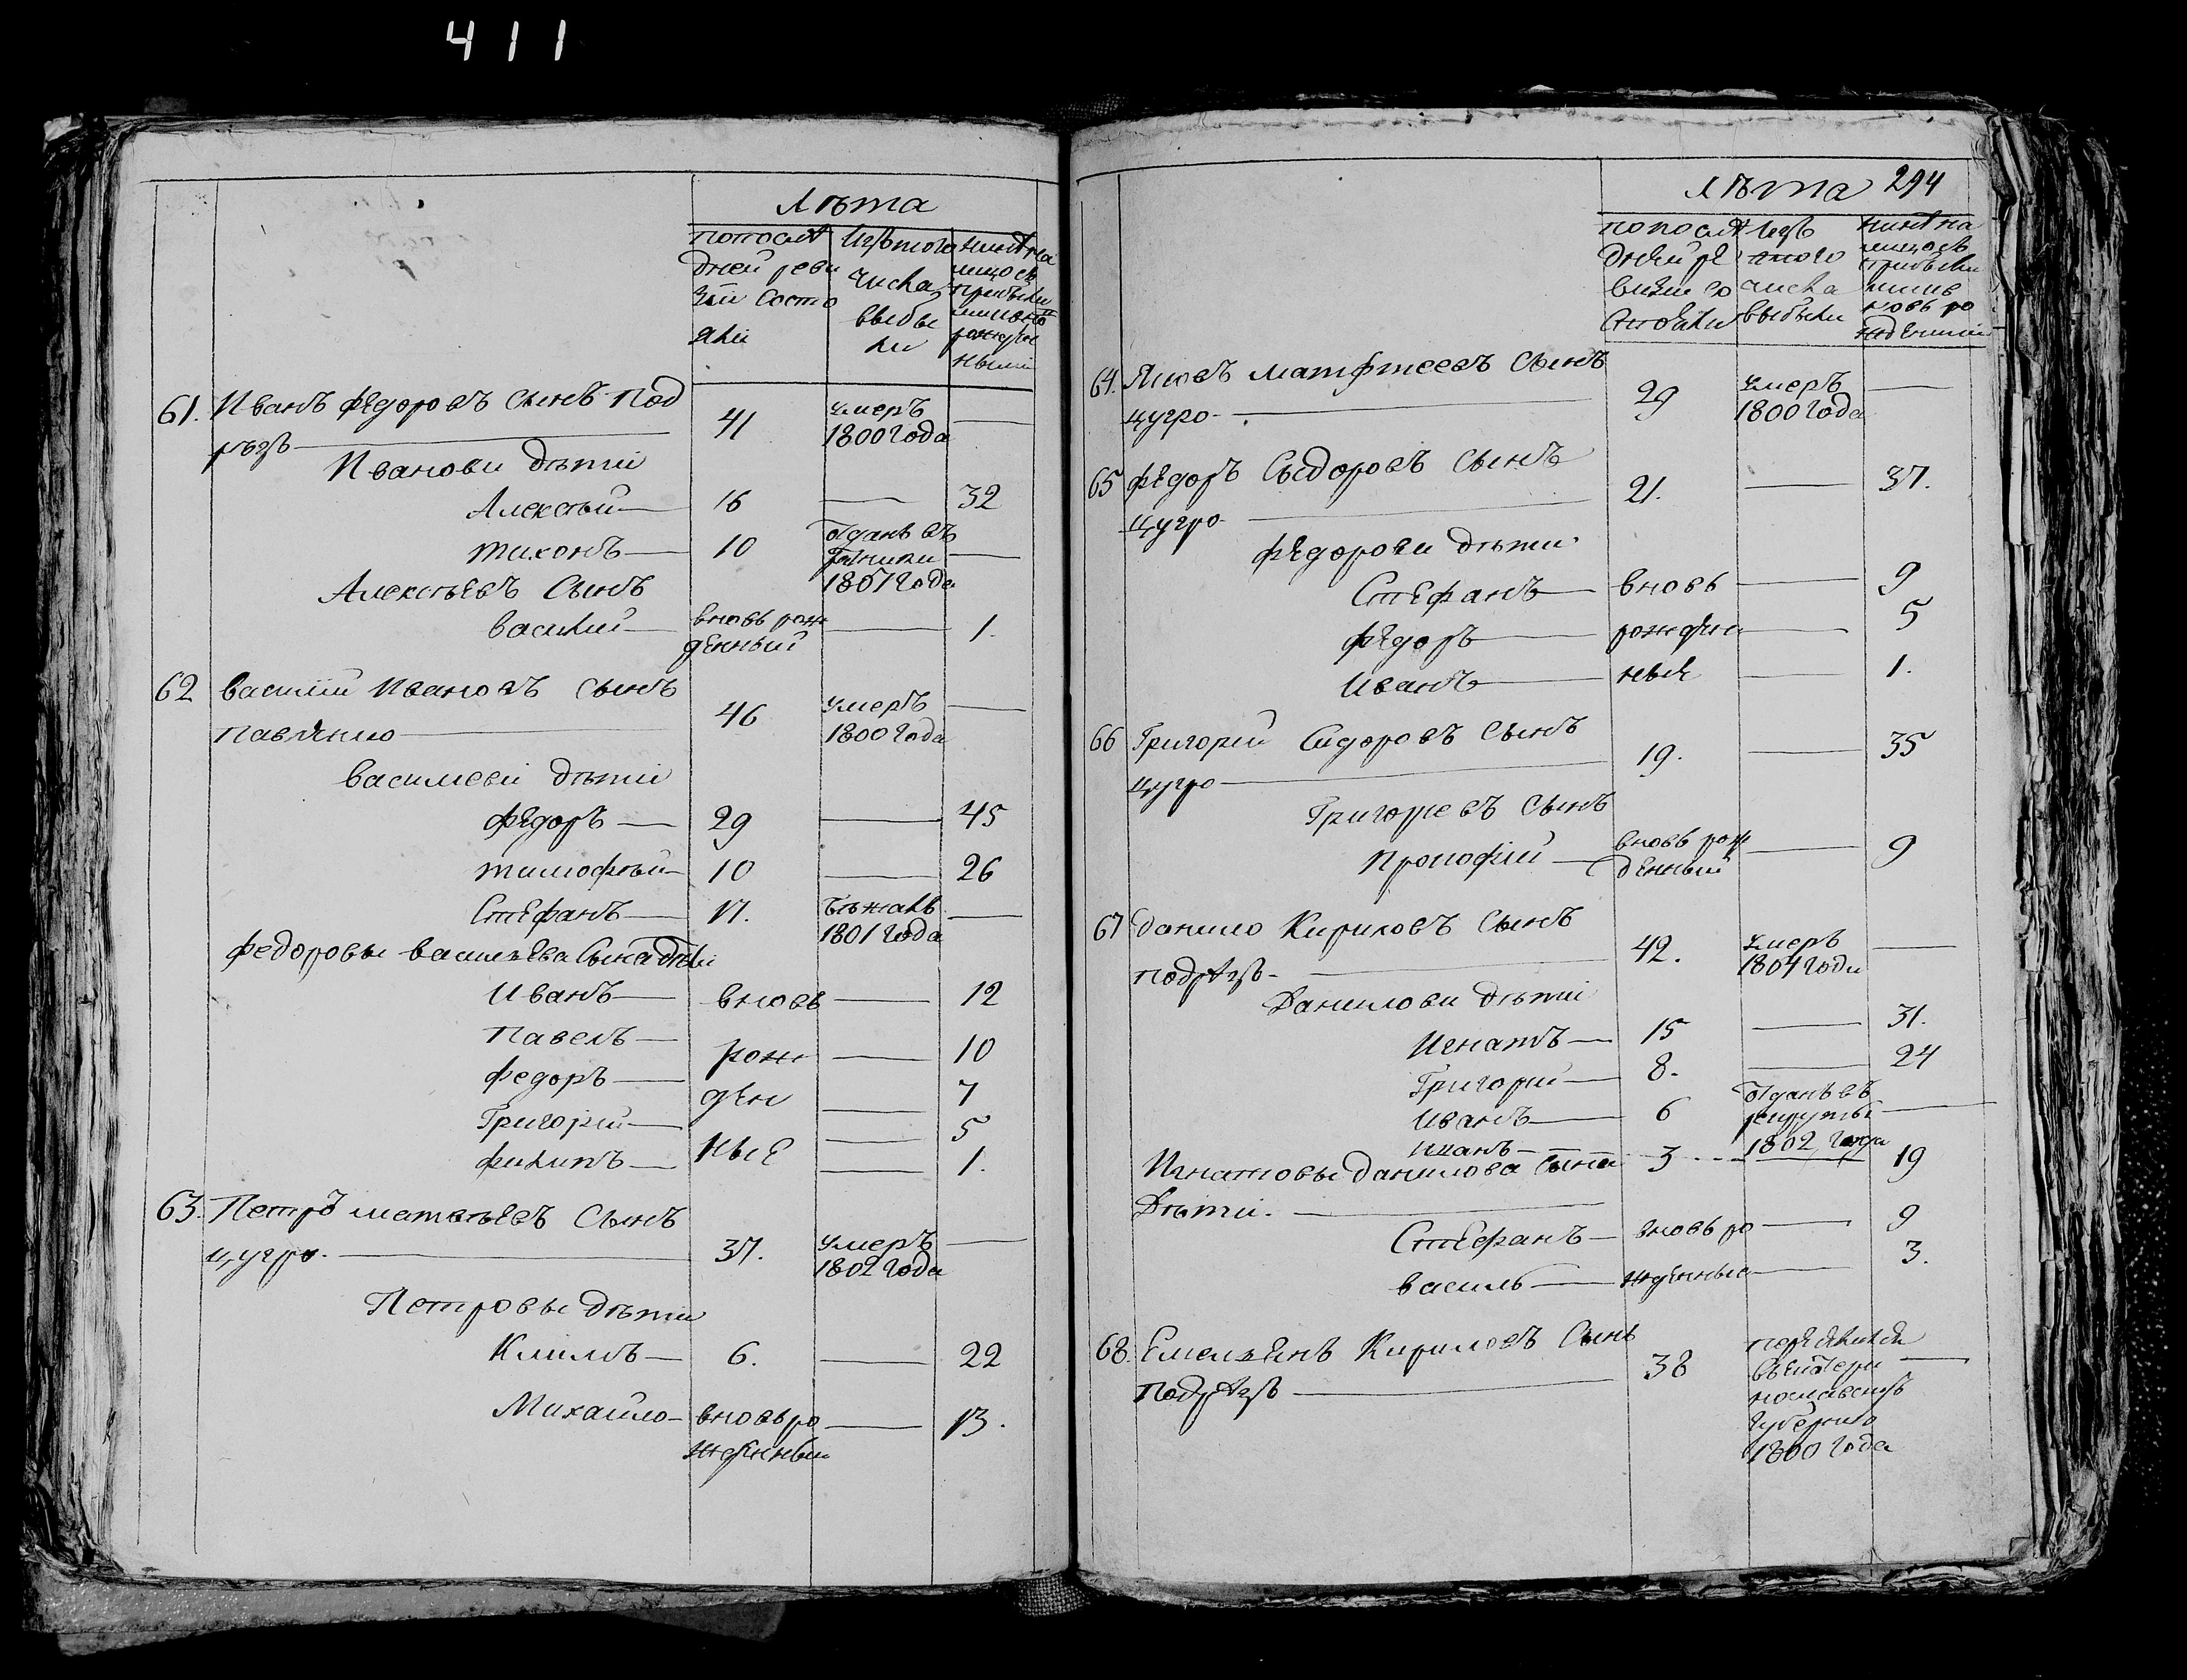 411
Лѣта
по послѣ
дней реви
зіи состо
яли
Изъ того
числа
выбы
ли
нынѣ на
лицо съ
прибылы
ми и но
рожден
ными
61. Иванъ Федоровъ Сынъ Под
рѣзъ 41 умеръ 1800 года —
Иванови дѣти
Алексѣй — 16 — 32
Тихонъ — 10 отданъ въ
1807 года —
Алексѣевъ Сынъ
Василий — вновь рож
денный — 1.
62 Василій Ивановъ Сынъ
Павленко — 46 умеръ 1800 года —
Василиеви дѣти
Федоръ — 29 — 45
Тимофѣй — 10 — 26
Стефанъ — 17. бѣжалъ 1801 года —
Федоровы Василъева Сына дѣти
Иванъ — вновь — 12
Павелъ — рож — 10
Федоръ — ден — 7
Григорій — ные — 5
Филипъ — — 1.
63. Петръ Матвѣевъ Сынъ
цугро. — 37. умеръ 1802 года —
Петровы дѣти
Климъ — 6. — 22
Михайло — вновь ро
жденный — 13.
Лѣта 294
по послѣ
дней ре
визии со
стояли
изъ
того
числа
выбыли
нынѣ на
лицо съ
прибылы
ми и в
новь ро
жденними
64. Яковъ Матфѣевъ Сынъ
цугро. — 29 умеръ 1800 года —
65 Федоръ Сыдоровъ Сынъ
цугро. — 21. — 37.
Федорови дѣти
Стефанъ — вновь — 9
Федоръ — рожден — 5
Иванъ — ные — 1.
66 Григорій Сидоровъ Сынъ
цугро — 19. — 35
Григориевъ Сынъ
Прокофій — вновь рож
денный — 9
67 Данило Кириловъ Сынъ
подрѣзъ. — 42. умеръ 1804 годи —
Данилови дѣти
Игнатъ — 15 — 31.
Григорій — 8. — 24
Иванъ — 6 отданъ въ
рекруты
1802 года —
Иванъ — 3 — 19
Игнатовы Данилова Сына
Дѣти. —
Стефанъ — вновь ро — 9
Василь — жденные — 3.
68. Емельянъ Кириловъ Сынъ
Подрѣзъ — 38 переселился
въ Екатери
нославскую
губернию
1800 года —